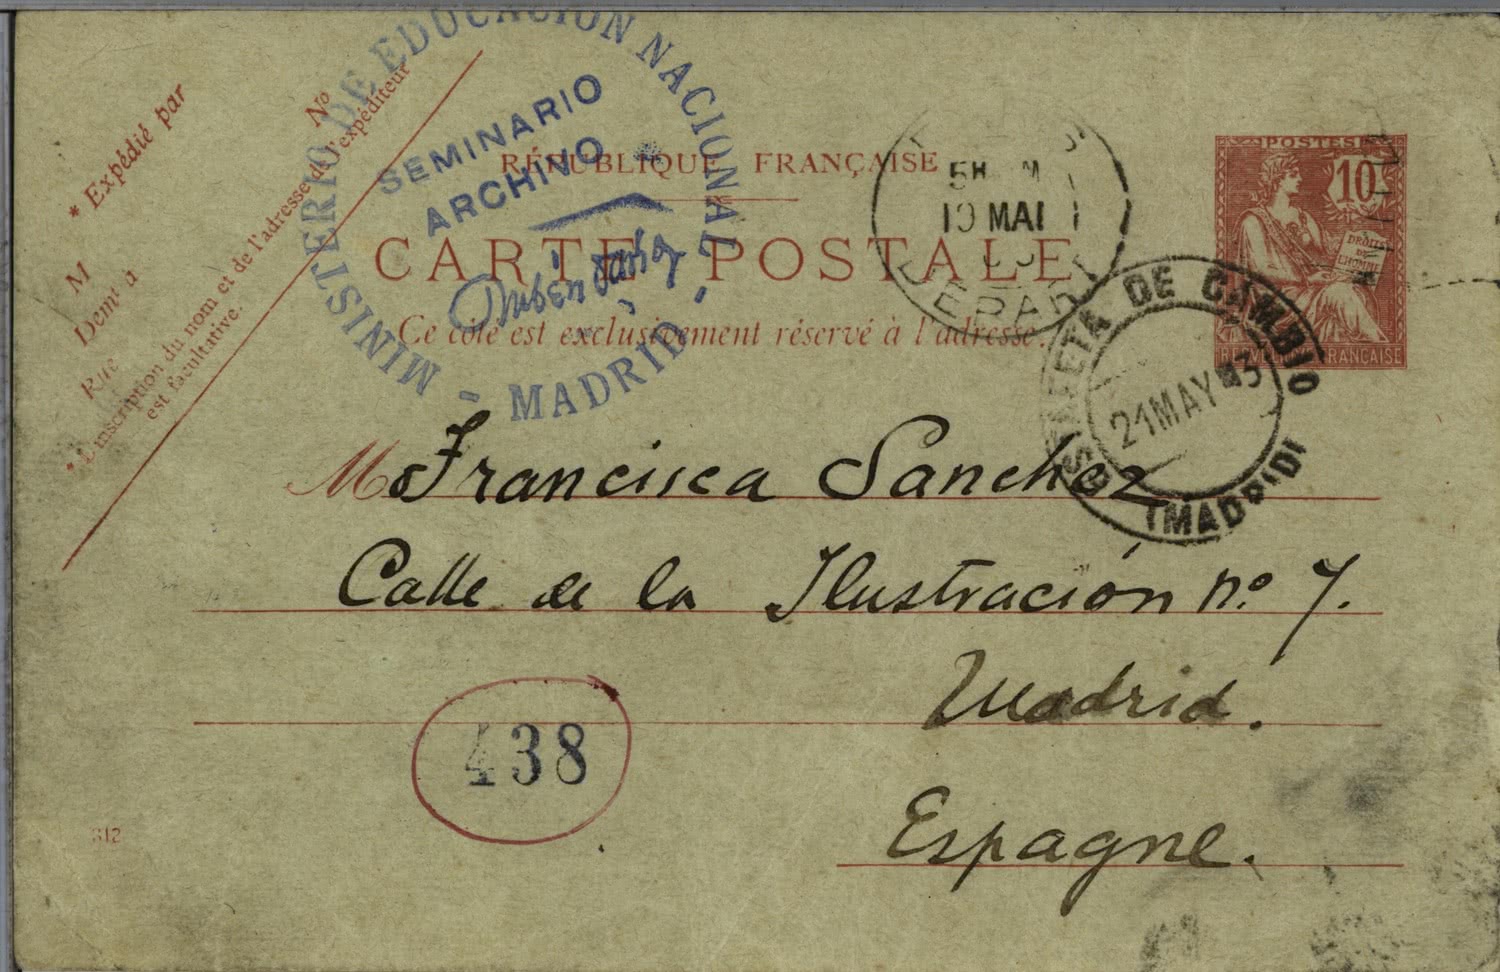 * Expédié par
M
Demt à
Rue
No
* L'inscription du nom et de l'adresse de l'expéditeur
est facultative.
MINISTERIO DE EDUCACION NACIONAL
- MADRID -
SEMINARIO
ARCHIVO
RÉPUBLIQUE FRANÇAISE
CARTE POSTALE
Ce côté est exclusivement réservé à l'adresse.
5H
19 MAI
DEPART
POSTES
10
DROITS
DE
L'HOMME
RÉPUBLIQUE FRANÇAISE
ESTAFETA DE CAMBIO
21 MAY
(MADRID)
M Francisca Sanchez
Calle de la Ilustración no. 7.
Madrid.
Espagne.
438
312